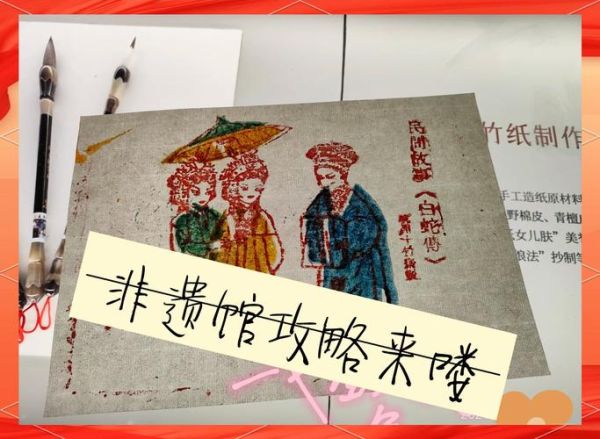 民间故事
《白蛇傳》
竹纸制作
手工造纸原材料
野棉皮、青檀
女儿肤”美
浪法”抄制
非遗馆攻略来喽